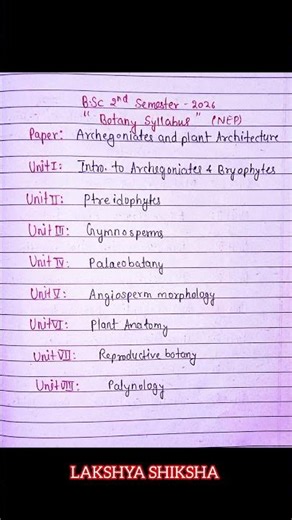 B.SC 2nd Semester - 2026
"Botany Syllabus" (NEP)
Paper: Archegoniates and plant Architecture
Unit I: Intro. to Archegoniates & Bryophytes
Unit II: Ptreidophytes
Unit III: Gymnosperms
Unit IV: Palaeobatany
Unit V: Angiosperm morphology
Unit VI: Plant Anatomy
Unit VII: Reproductive botany
Unit VIII: Palynology
LAKSHYA SHIKSHA